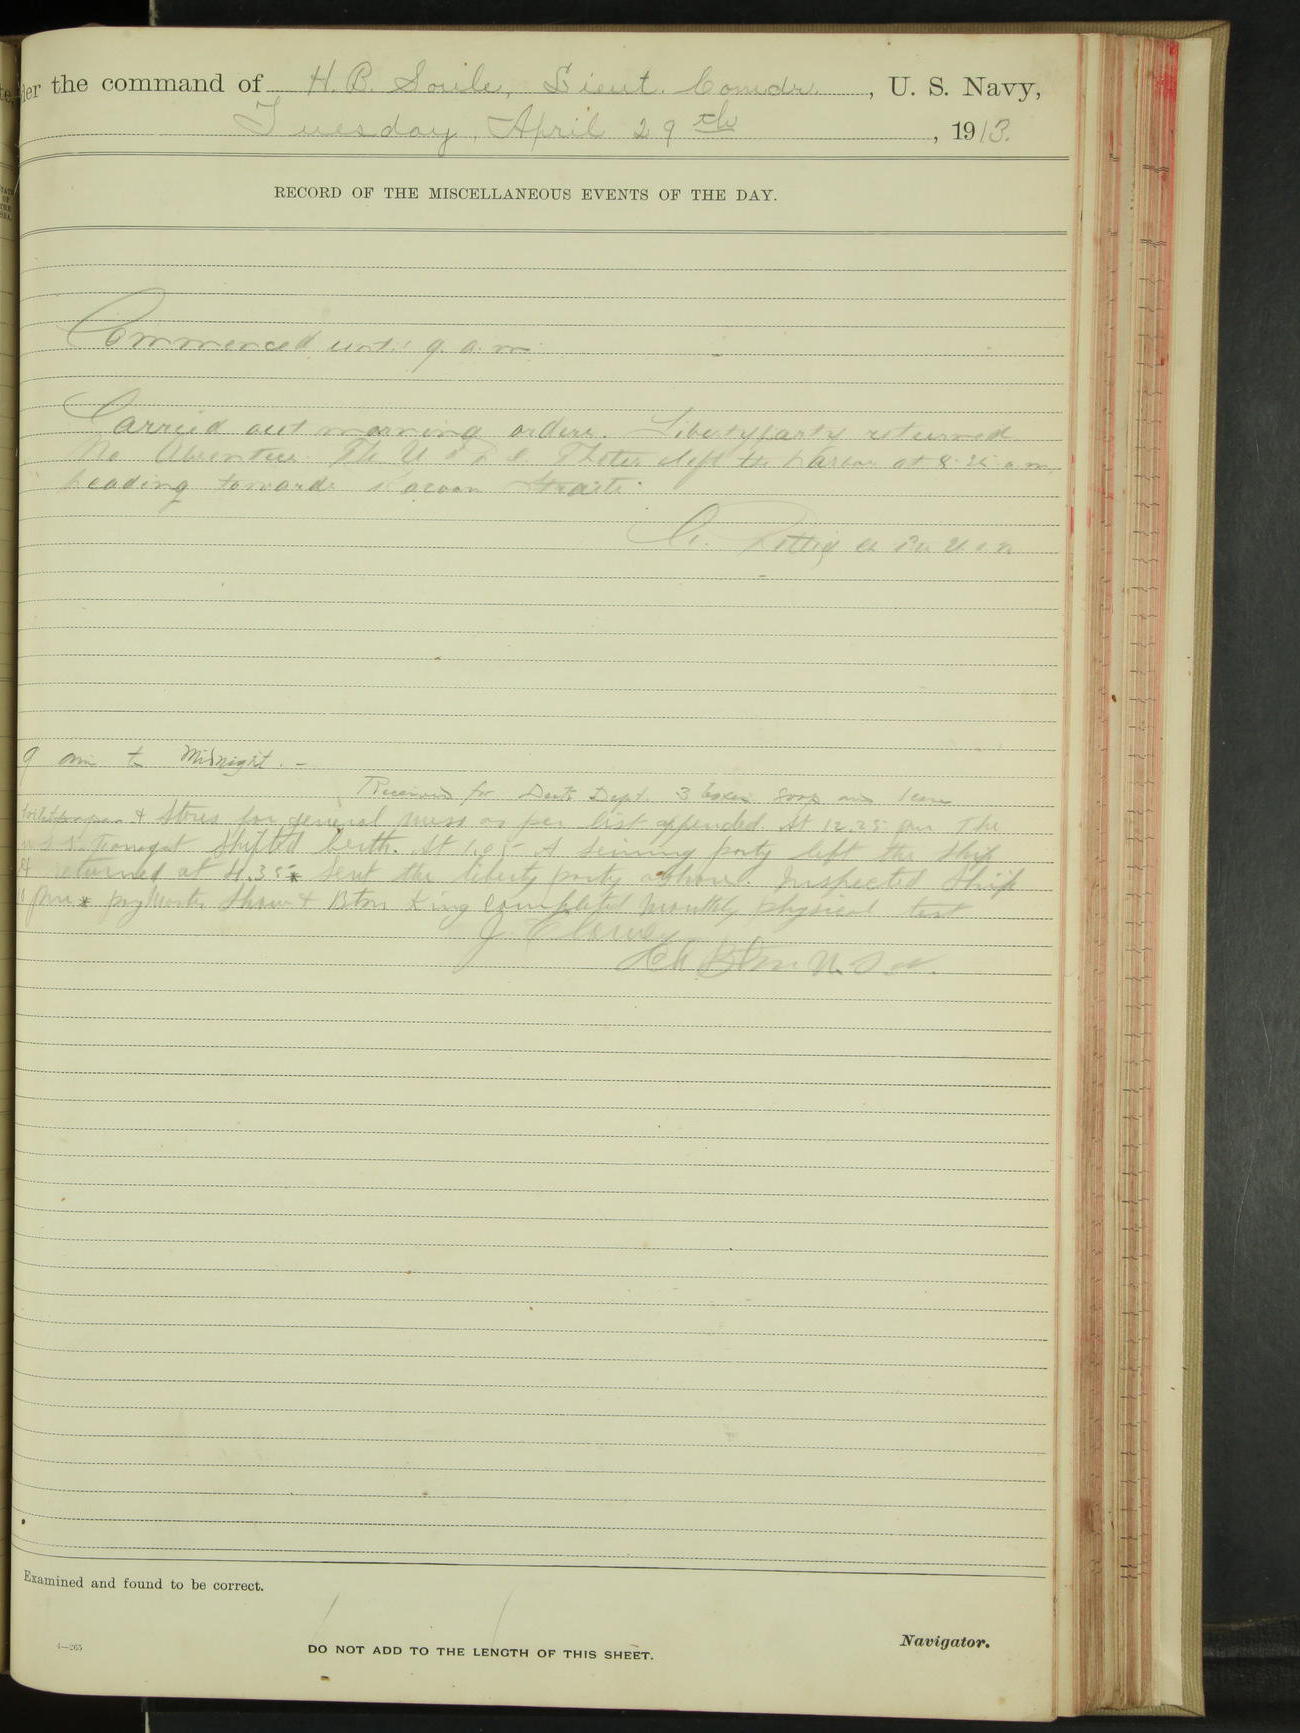 der the command of H. B. Soule, Lieut. Comdr., U. S. Navy,
Tuesday, April 29th, 1913.
RECORD OF THE MISCELLANEOUS EVENTS OF THE DAY.
Commenced until 9 a.m.
Carried out morning orders. Liberty party returned
No Absentees. The U.S. left the harbor at 8.25 a.m.
heading towards Racoon Straits.
9 am to Midnight. –
Received for Dept. 3 boxes soap and 1 case
& Stores for general mess as per list appended. At 12.25 pm The
shifted berth. At 1.05 A seining party left the ship
& returned at 4.35 * Sent the liberty party ashore. Inspected Ship
* paymaster & Btsn King completed monthly physical test
J.
Ch Btsn U.S.N.
Examined and found to be correct.
4—265
DO NOT ADD TO THE LENGTH OF THIS SHEET.
Navigator.